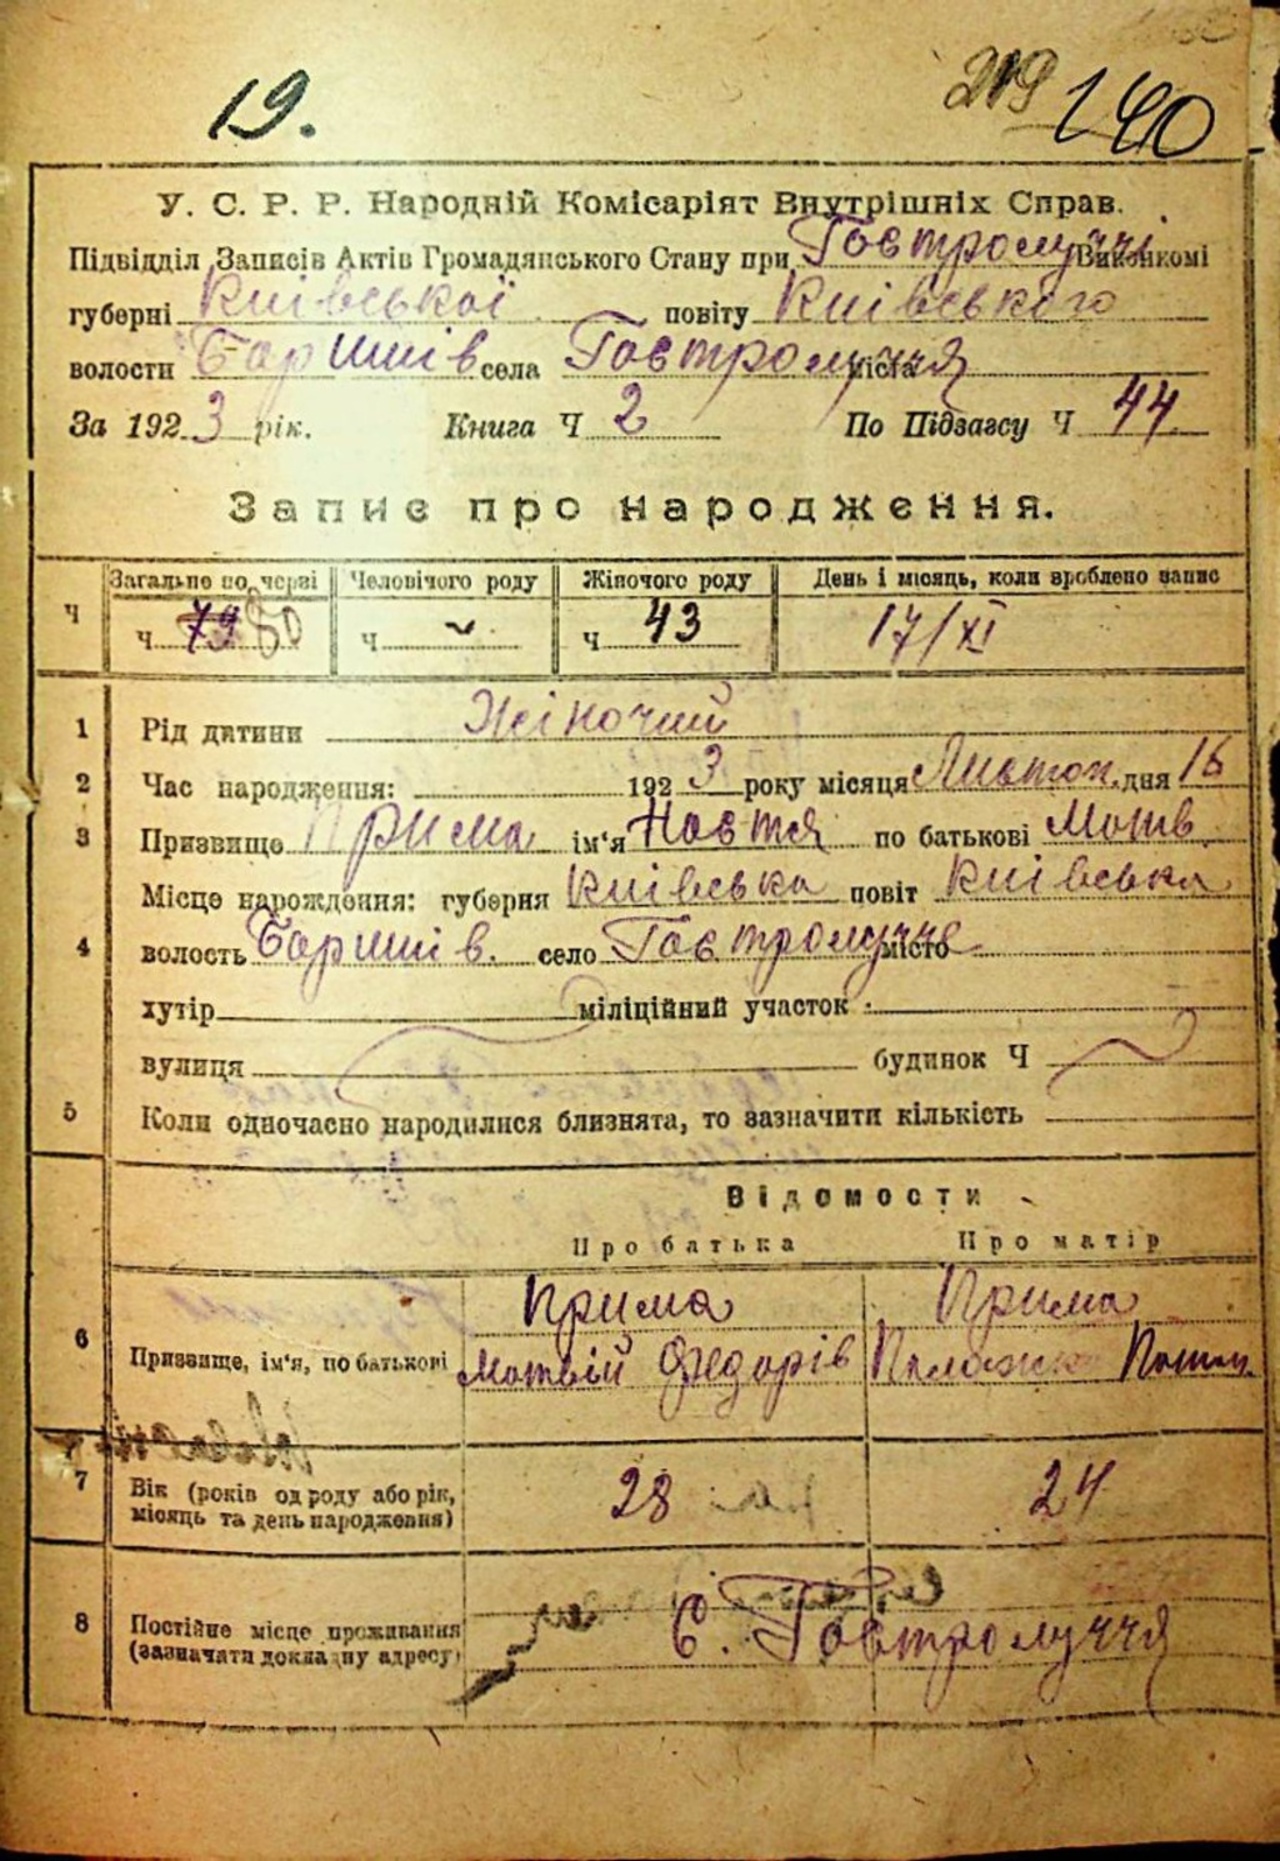 19.
219 140
У. С. Р. Р. Народній Комісаріят Внутрішніх Справ.
Підвідділ Записів Актів Громадянського Стану при Гостролуччі Виконкомі
губерні Київської повіту Київського
волости Баришів села Гостролуччя міста
За 1923 рік. Книга Ч 2 По Підзагсу Ч 44
Запис про народження.
Загальне по черзі Человічого роду Жіночого роду День і місяць, коли зроблено запис
Ч ч. 79 80 ч. ч. 43 17/XI
1 Рід дитини Жіночий
2 Час народження: 1923 року місяця Листоп. дня 16
3 Призвище Прима ім'я Настя по батькові Мотв
Місце народження: губерня Київська повіт Київська
4 волость Баришів. село Гостролучче місто
хутір міліційний участок
вулиця будинок Ч
5 Коли одночасно народилися близнята, то зазначити кількість
Відомости
Про батька Про матір
Прима Прима
6 Призвище, ім'я, по батькові Мотвій Федорів Палажка Потап.
7 Вік (років од роду або рік, 28 24
місяць та день народження)
8 Постійне місце проживання с. Гостролуччя
(зазначати докладну адресу)